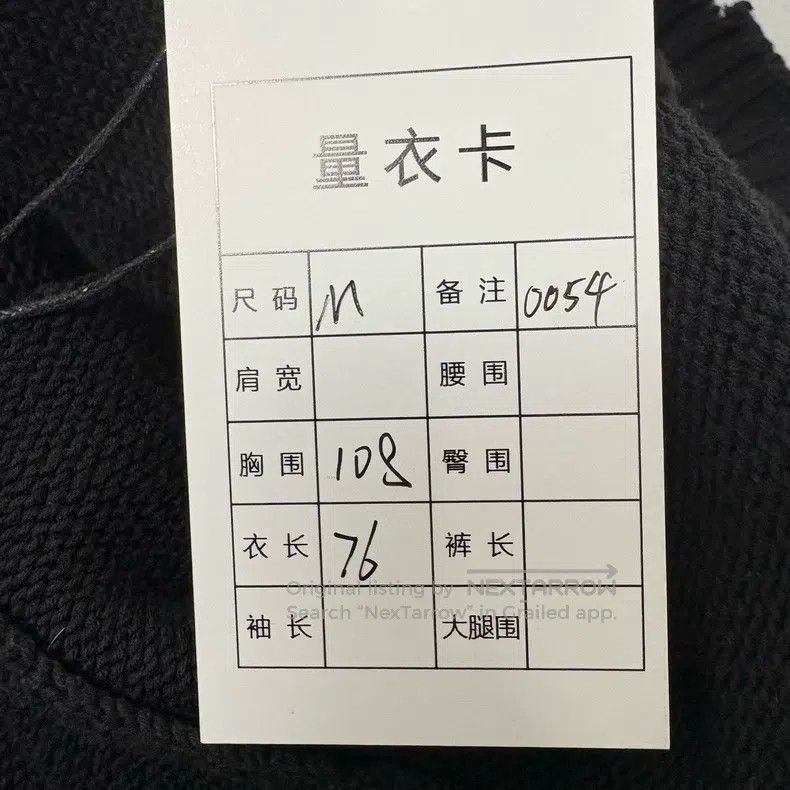 量衣卡
尺码 M 备注 0054
肩宽 腰围
胸围 108 臀围
衣长 76 裤长
Original listing by NEXTARROW
Search "NexTarrow" in Grailed app.
袖长 大腿围